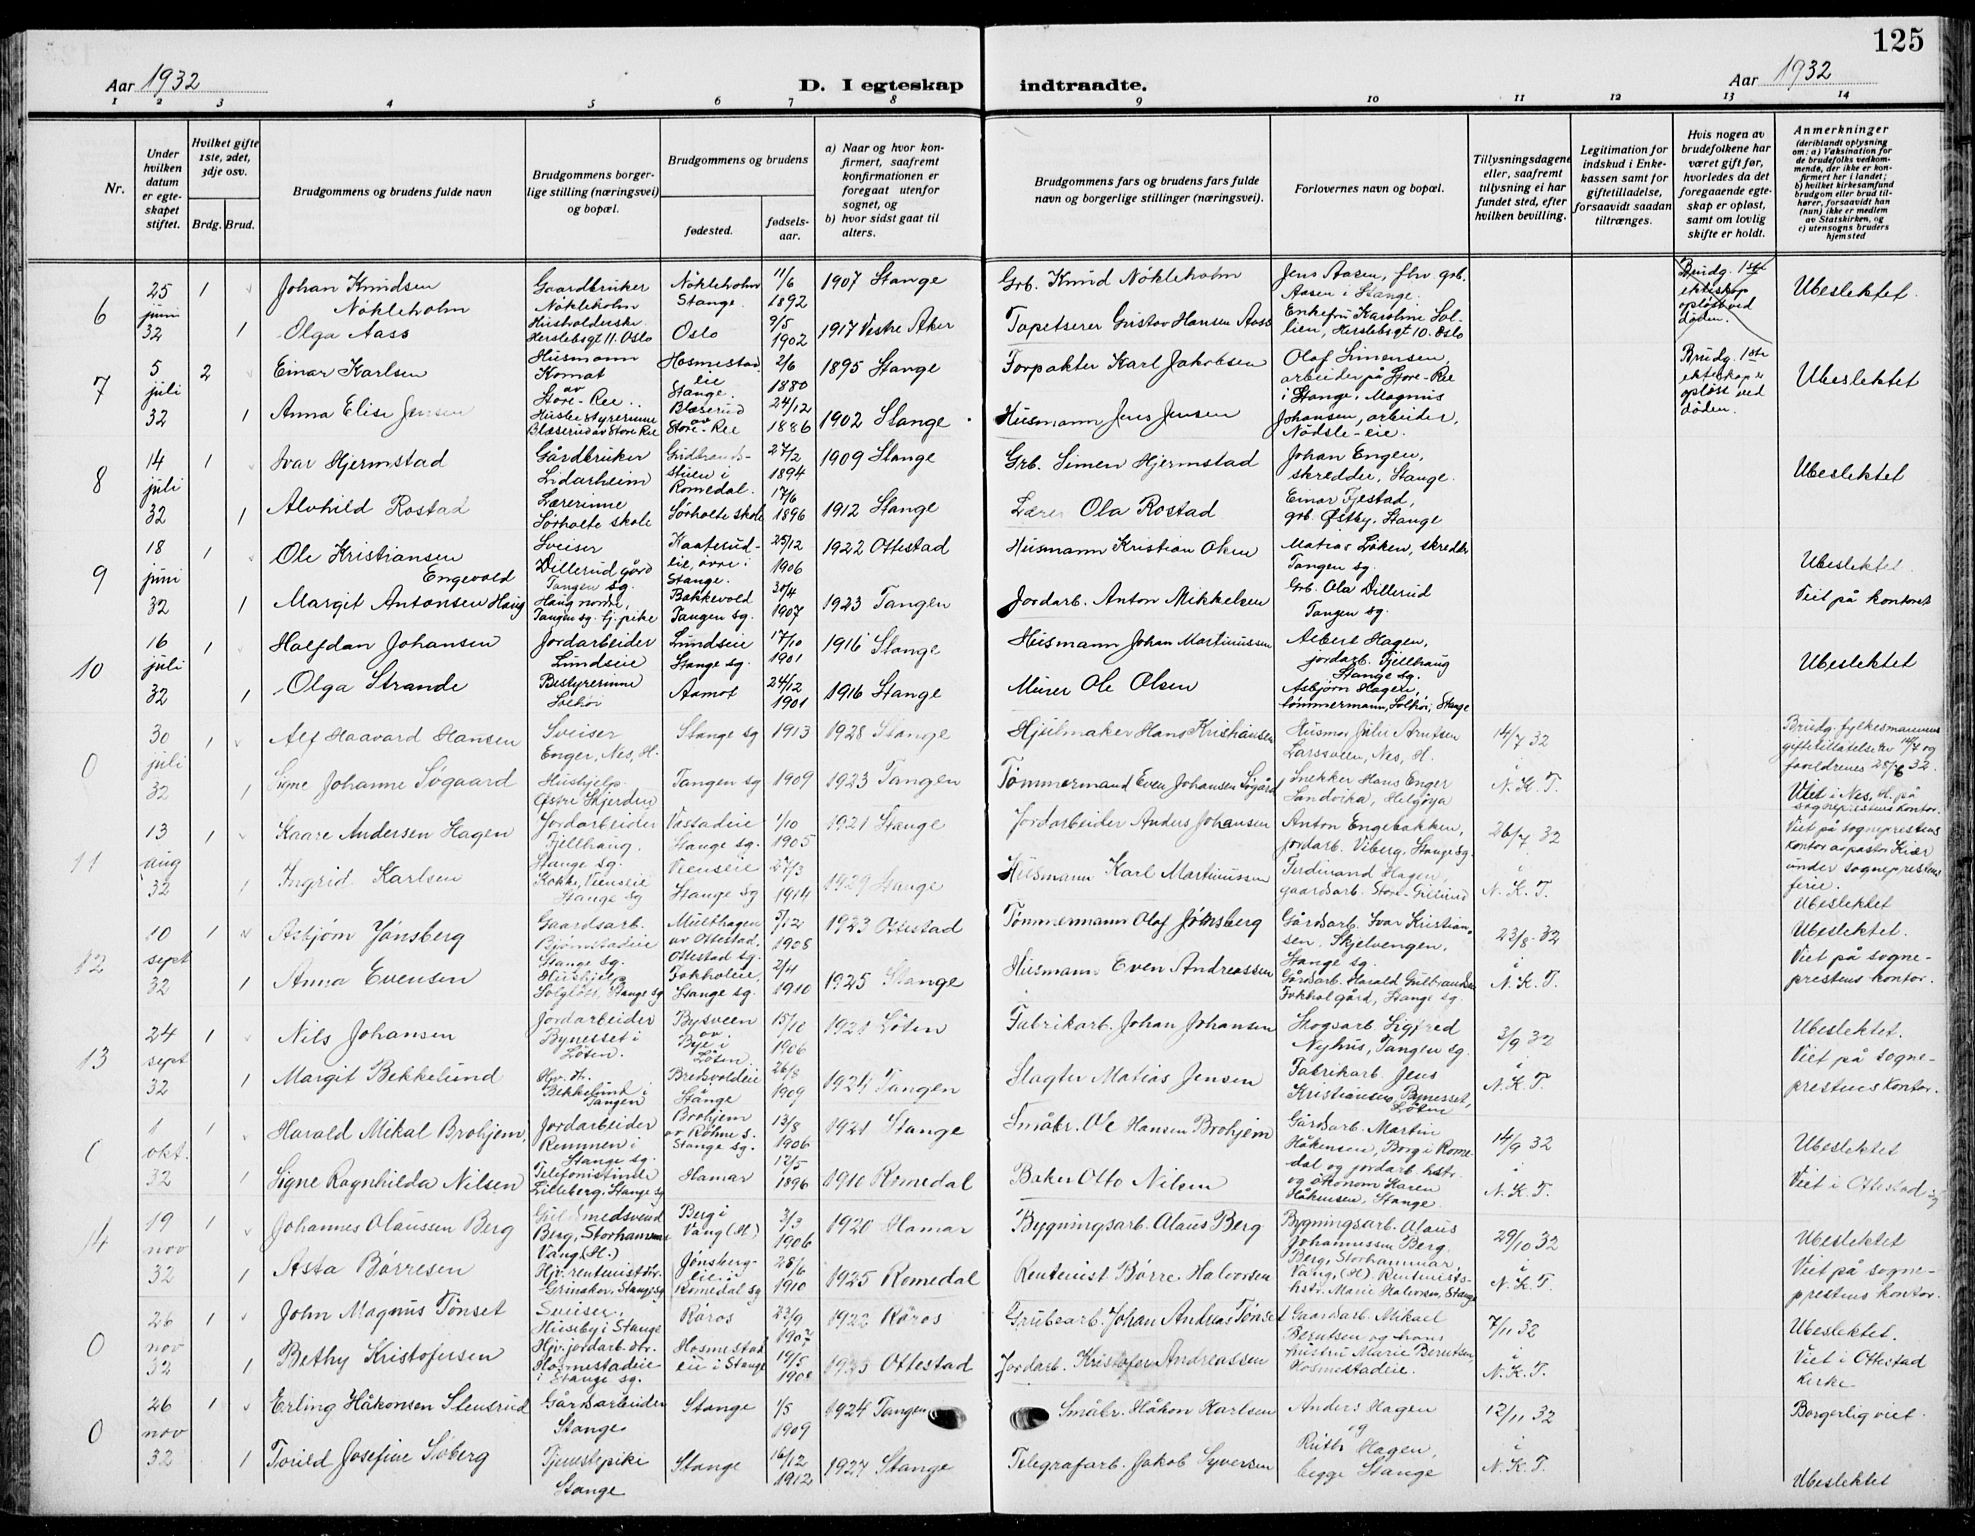 125
Aar 1932
D. I egteskap indtraadte.
Aar 1932
1 2 3 4 5 6 7 8 9 10 11 12 13 14
Nr.
Under hvilken datum er egteskapet stiftet.
Hvilket gifte 1ste, 2det, 3dje osv.
Brdg. Brud.
Brudgommens og brudens fulde navn
Brudgommens borgerlige stilling (næringsvei) og bopæl.
Brudgommens og brudens
fødested.
fødselsaar.
a) Naar og hvor konfirmert, saafremt konfirmationen er foregaat utenfor sognet, og
b) hvor sidst gaat til alters.
Brudgommens fars og brudens fars fulde navn og borgerlige stillinger (næringsvei).
Forlovernes navn og bopæl.
Tillysningsdagene eller, saafremt tillysning ei har fundet sted, efter hvilken bevilling.
Legitimation for indskud i Enkekassen samt for giftetilladelse, forsaavidt saadan tiltrænges.
Hvis nogen av brudefolkene har været gift før, hvorledes da det foregaaende egteskap er opløst, samt om lovlig skifte er holdt.
Anmerkninger
(deriblandt oplysning om: a) Vaksination for de brudefolks vedkommende, der ikke er konfirmert her i landet;
b) hvilket kirkesamfund brudgom eller brud tilhører, forsaavidt han (hun) ikke er medlem av Statskirken, og
c) utensogns bruders hjemsted
6
25 juni 32
1 Johan Knudsen Nökleholm
Gaardbruker Nökleholm
Nökleholm Stange
11/6 1892
1907 Stange
Grb. Knud Nökleholm
Jens Aasen, fhv grb. Aasen i Stange.
Brudg. 1ste ekteskap opløst ved døden.
Ubeslektet.
1 Olga Aass
Husholderske Herslebsgt 11. Oslo
Oslo
9/5 1902
1917 Vestre Aker
Tapetserer Gustav Hansen Aass
Enkefru Karoline Sollien, Herslebsgt 10. Oslo
7
5 juli 32
2 Einar Karlsen
Husmann Komat av Store-Ree
Hosmestadeie Stange.
2/6 1880
1895 Stange
Forpakter Karl Jakobsen
Olaf Simensen, arbeider på Store-Ree i Stange, Magnus Johansen, arbeider, Nødsle-eie.
Brudg. 1ste ekteskap er opløst ved døden.
Ubeslektet
1 Anna Elise Jensen
Husbestyrerinne Blæserud av Store Ree
Blæserud av Store-Ree
24/12 1886
1902 Stange
Husmann Jens Jensen
8
14 juli 32
1 Ivar Hjermstad
Gårdbruker Lidarheim
i Romedal.
27/2 1894
1909 Stange
Grb. Simen Hjermstad
Johan Engen, skredder, Stange.
Ubeslektet
1 Alvhild Rostad
Lærerinne Sørholte skole
Sørholte skole
17/6 1896
1912 Stange
Lærer Ola Rostad
Einar Fjestad, grb. Østby, Stange
9
18 juni 32
1 Ole Kristiansen Engevold
Sveiser Dillerud gård Tangen sg.
Stange.
25/12 1906
1922 Ottestad
Husmann Kristian Olsen
Matias Løken, skredder Tangen sg.
Ubeslektet.
1 Margit Antonsen Haug
Haug nordre, Tangen sg. tj. pike
Bakkevold Tangen sg.
30/4 1907
1923 Tangen
Jordarb. Anton Mikkelsen
Grb. Ola Dillerud Tangen sg.
Viet på kontoret
10
16 juli 32
1 Halfdan Johansen
Jordarbeider Lundseie
Lundseie Stange sg.
17/10 1901
1916 Stange
Husmann Johan Martinussen
Albert Hagen, jordarb. Fjellhaug Stange sg.
Ubeslektet
1 Olga Strande
Bestyrerinne Solhói
Aamot
24/12 1901
1916 Stange
Murer Ole Olsen
Asbjørn Hagen, tømmermann, Solhói, Stange
0
30 juli 32
1 Alf Haavard Hansen
Sveiser Enger, Nes, H.
Stange sg
1913
1928 Stange
Hjulmaker Hans Kristiansen
Husmor Julie Arntsen Larssveen, Nes, H.
14/7 32 i N. K. T.
Brudg. fylkesmannens giftetillatelse av 14/7 og foreldrenes 28/6 32.
1 Signe Johanne Søgaard
Hushjelp Østre Skjerden
Tangen sg
1909
1923 Tangen
Tømmermand Even Johansen Søgård
Snekker Hans Enger Sandvika, Helgøya
Viet i Nes, H. på sogneprestens kontor.
11
13 aug 32
1 Kaare Andersen Hagen
Jordarbeider Fjellhaug, Stange sg.
Vestadeie Stange sg.
1/10 1905
1921 Stange
Jordarbeider Anders Johansen
Anton Engebakken, Jordarb. Viberg, Stange sg.
26/7 32 i N. K. T.
Viet på sogneprestens kontor av pastor Kiær under sogneprestens ferie.
1 Ingrid Karlsen
Kokke, Vienseie Stange sg
Vienseie Stange sg
27/3 1914
1929 Stange
Husmann Karl Martinussen
Ferdinand Hagen, gaardsarb. Store-Gillund
Ubeslektet
12
10 sept 32
1 Asbjørn Jónsberg
Gaardsarb. Bjørnstadeie Stange sg.
Multhagen av Ottestad, Ottestad sg.
5/12 1908
1923 Ottestad
Tømmermann Olaf Jónsberg
Gårdsarb. Ivar Kristiansen, Skjelvengen, Stange sg.
23/8-32 i N. K. T.
Ubeslektet.
1 Anna Evensen
Hushjelp Solglótt, Stange sg
Fokholeie, Stange sg.
2/4 1910
1925 Stange
Husmann Even Andreassen
Gårdsarb. Harald Gulbrandsen Fokholgård, Stange sg.
Viet på sogneprestens kontor.
13
24 sept 32
1 Nils Johansen
Jordarbeider Bynesset i Löten.
Bysveen av Bye i Löten
15/10 1906
1921 Löten
Fabrikarb. Johan Johansen
Skogsarb. Sigfred Nyhus, Tangen sg.
3/9 32 i N. K. T.
Ubeslektet.
1 Margit Bekkelund
Hjv. dtr. Bekkelund i Tangen
Bredvoldeie i Stange
26/8 1909
1924 Tangen
Slagter Matias Jensen
Fabrikarb. Jens Kristiansen Bynesset, Löten
Viet på sogneprestens kontor.
0
1 okt. 32
1 Harald Mikal Brohjem
Jordarbeider Remmen i Stange sg.
Brohjem av Røhne s. Stange sg.
13/8 1906
1921 Stange
Småbr. Ole Hansen Brohjem
Gårdsarb. Martin Håkensen, Borg i Romedal og jordarb. hstr. og økonom Karen Håkensen, Stange
14/9 32 i N. K. T.
Ubeslektet
1 Signe Ragnhilda Nilsen
Telefonistinde Lilleberg, Stange sg
Hamar
12/5 1896
1910 Romedal
Baker Otto Nilsen
Viet i Ottestad
14
19 nov 32
1 Johannes Olaussen Berg
Gullsmedsvend Berg, Storhammer Vang (H.)
Berg i Vang (H)
3/3 1906
1920 Hamar
Bygningsarb. Olaus Berg
Bygningsarb. Olaus Johannessen Berg, Berg, Storhammar, Vang, (H). Rentenists hstr. Marie Halvorsen, Stange
29/10 32 i N. K. T.
Ubeslektet
1 Asta Børresen
Hjv. rentenist dtr. Grinaker, Stange sg
Jønsbergeie i Romedal sg
25/6 1910
1925 Romedal
Rentenist Børre Halvorsen
Viet på sogneprestens kontor.
0
26 nov 32
1 John Magnus Tønset
Sveiser. Huseby i Stange
Röros
23/9 1907
1922 Röros
Grubearb. Johan Andreas Tønset
Gaardarb. Mikael Berntsen og hans hustru Marie Berntsen, Hosmestadeie.
7/11 32 i N. K. T.
Ubeslektet.
1 Bethy Kristofersen
Hjv. jordarb. dtr. Hosmestadeie i Stange sg.
Hosmestadeie i Stange
19/5 1908
Ottestad
Jordarb. Kristofer Andreassen
Viet i Ottestad kirke
0
26 nov 32
1 Erling Håkonsen Stensrud
Gårdsarbeider Stange
Stange
1/5 1909
1924 Tangen
Småbr. Håkon Karlsen
Anders Hagen og Ruth Hagen, begge Stange
12/11 32 i N. K. T.
Borgerlig viet.
1 Torild Josefine Sóberg
Tjenestepike Stange
Stange
16/12 1912
1927 Stange
Telegrafarb. Jakob Syversen
Ubeslektet